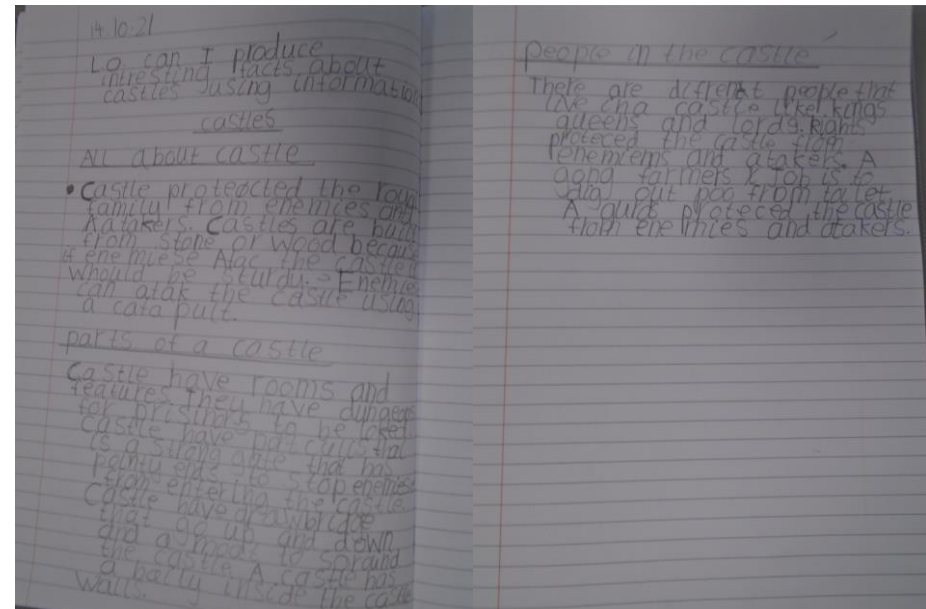 14.10.21
LO can I produce
intresting facts about
castles using information
castles
All about castle
• Castle proteocted the royal
family from enemies and
Aatakers. Castles are built
from stone or wood because
if enemiese Atac the castle it
whould be sturdy. Enemies
can atak the castle using
a catapult.
parts of a castle
Castle have rooms and
features. They have dungeos
for prisinors to be loked.
Castle have that
is a strong gate that has
pointy ends to stop enemies
from entering the castle.
Castle have drawbridge
that go up and down
and a moat to soround
the castle. A castle has
a baely inside the castle
walls.
people in the castle
There are diffrent people that
live in a castle like kings
queens and lords.
proteced the castle from
enemiems and atakers. A
gong farmers Job is to
dig out poo from toilet
A guard proteced the castle
from enemies and atakers.